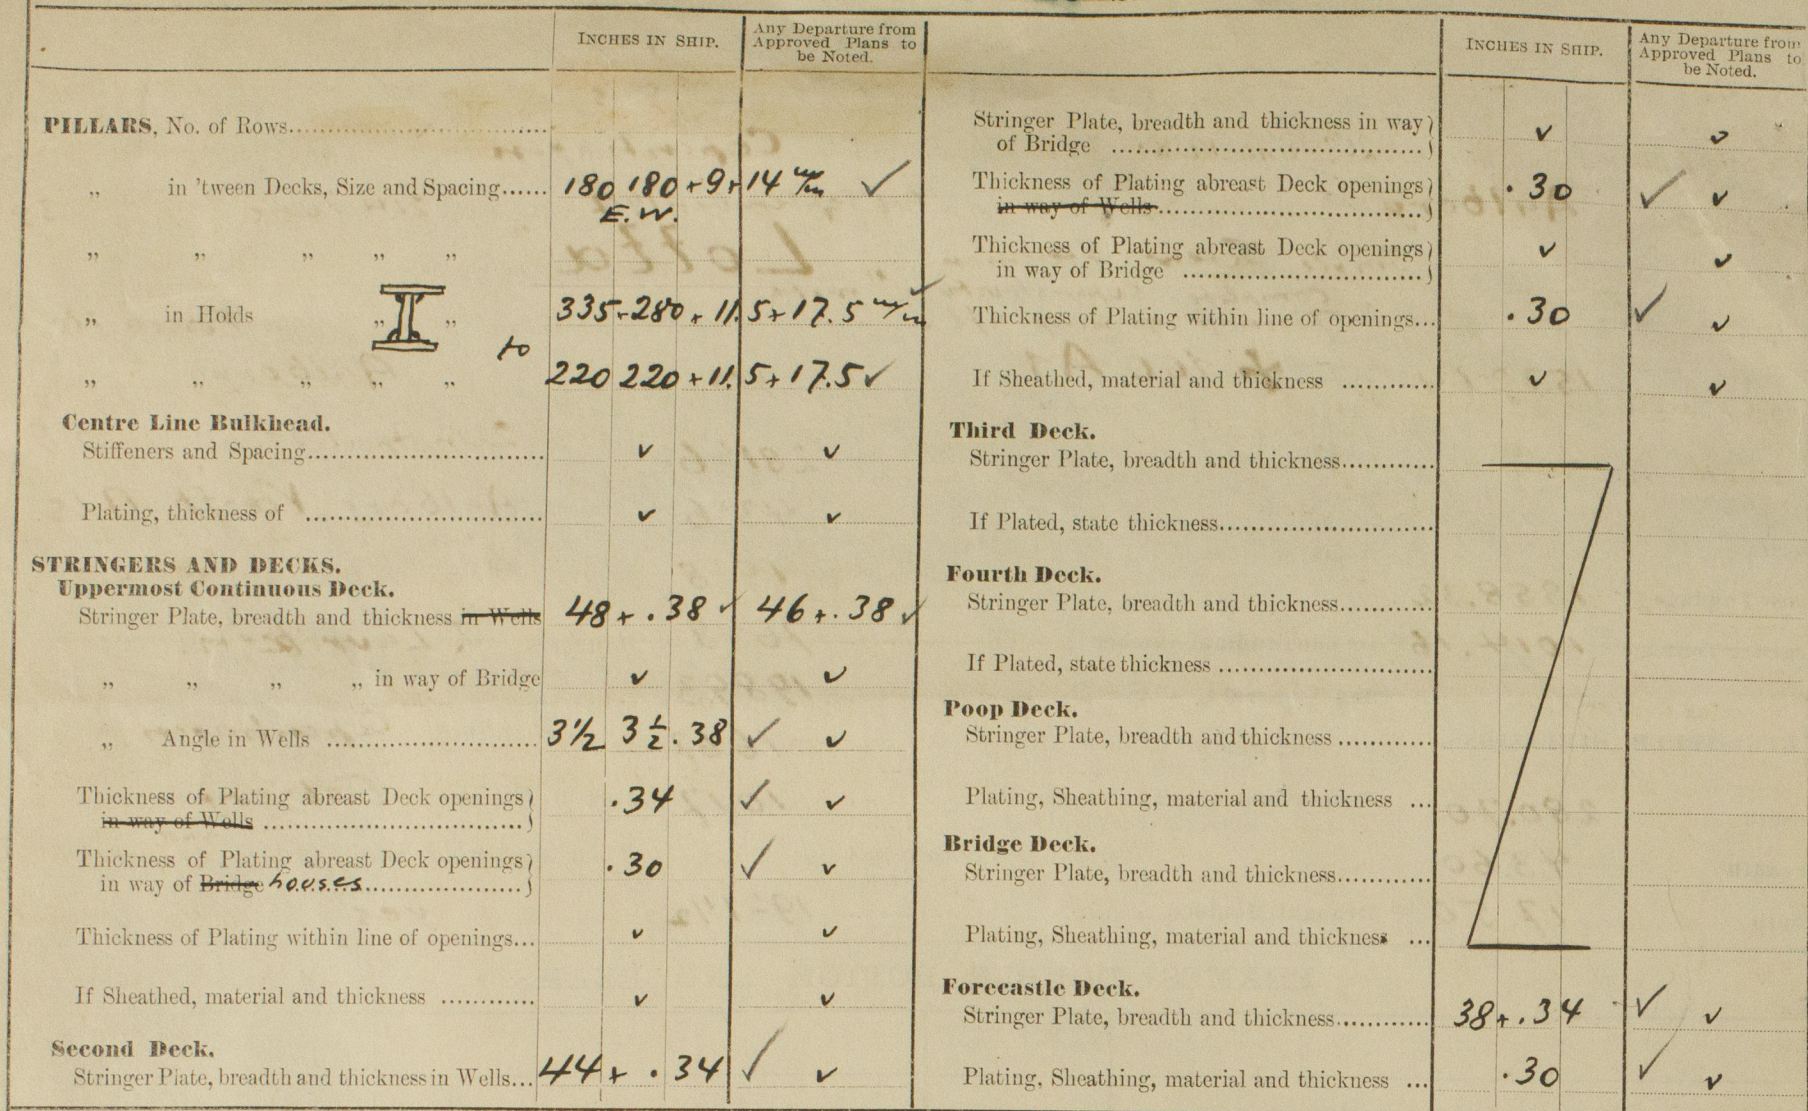 INCHES IN SHIP.
Any Departure from
Approved Plans to
be Noted.
PILLARS, No. of Rows
„ in 'tween Decks, Size and Spacing...... 180 180 + 9 + 14 m/m ✓
E.W.
„ „ „ „ „
„ in Holds „ „ 335 + 280 + 11.5 + 17.5 m/m ✓
to
„ „ „ „ „ 220 220 + 11.5 + 17.5 ✓
Centre Line Bulkhead.
Stiffeners and Spacing ✓ ✓
Plating, thickness of ✓ ✓
STRINGERS AND DECKS.
Uppermost Continuous Deck.
Stringer Plate, breadth and thickness in Wells 48 + .38 ✓ 46 + .38 ✓
„ „ „ „ in way of Bridge ✓ ✓
„ Angle in Wells 3 1/2 3 1/2 .38 ✓ ✓
Thickness of Plating abreast Deck openings .34 ✓ ✓
in way of Wells
Thickness of Plating abreast Deck openings .30 ✓ ✓
in way of Bridge houses
Thickness of Plating within line of openings... ✓ ✓
If Sheathed, material and thickness ✓ ✓
Second Deck.
Stringer Plate, breadth and thickness in Wells... 44 + .34 ✓ ✓
INCHES IN SHIP.
Any Departure from
Approved Plans to
be Noted.
Stringer Plate, breadth and thickness in way ✓ ✓
of Bridge
Thickness of Plating abreast Deck openings .30 ✓ ✓
in way of Wells
Thickness of Plating abreast Deck openings ✓ ✓
in way of Bridge
Thickness of Plating within line of openings... .30 ✓ ✓
If Sheathed, material and thickness ✓ ✓
Third Deck.
Stringer Plate, breadth and thickness
If Plated, state thickness
Fourth Deck.
Stringer Plate, breadth and thickness
If Plated, state thickness
Poop Deck.
Stringer Plate, breadth and thickness
Plating, Sheathing, material and thickness ...
Bridge Deck.
Stringer Plate, breadth and thickness
Plating, Sheathing, material and thickness ...
Forecastle Deck.
Stringer Plate, breadth and thickness 38 + .34 ✓ ✓
Plating, Sheathing, material and thickness ... .30 ✓ ✓